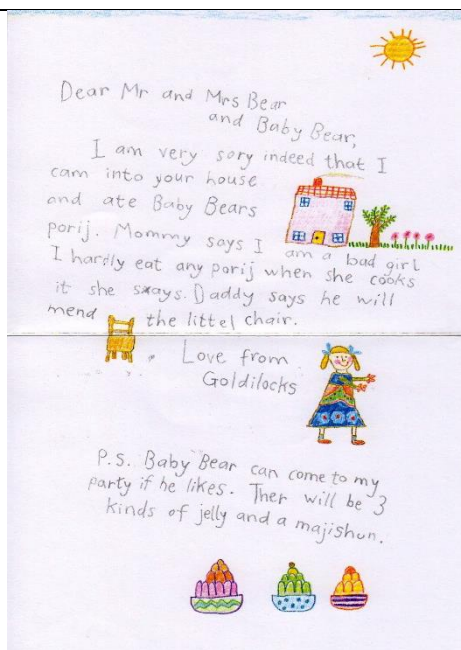 Dear Mr and Mrs Bear
and Baby Bear,
I am very sory indeed that I
cam into your house
and ate Baby Bears
porij. Mommy says I am a bad girl
I hardly eat any porij when she cooks
it she sxays. Daddy says he will
mend the littel chair.
Love from
Goldilocks
P.S. Baby Bear can come to my
party if he likes. Ther will be 3
kinds of jelly and a majishun.